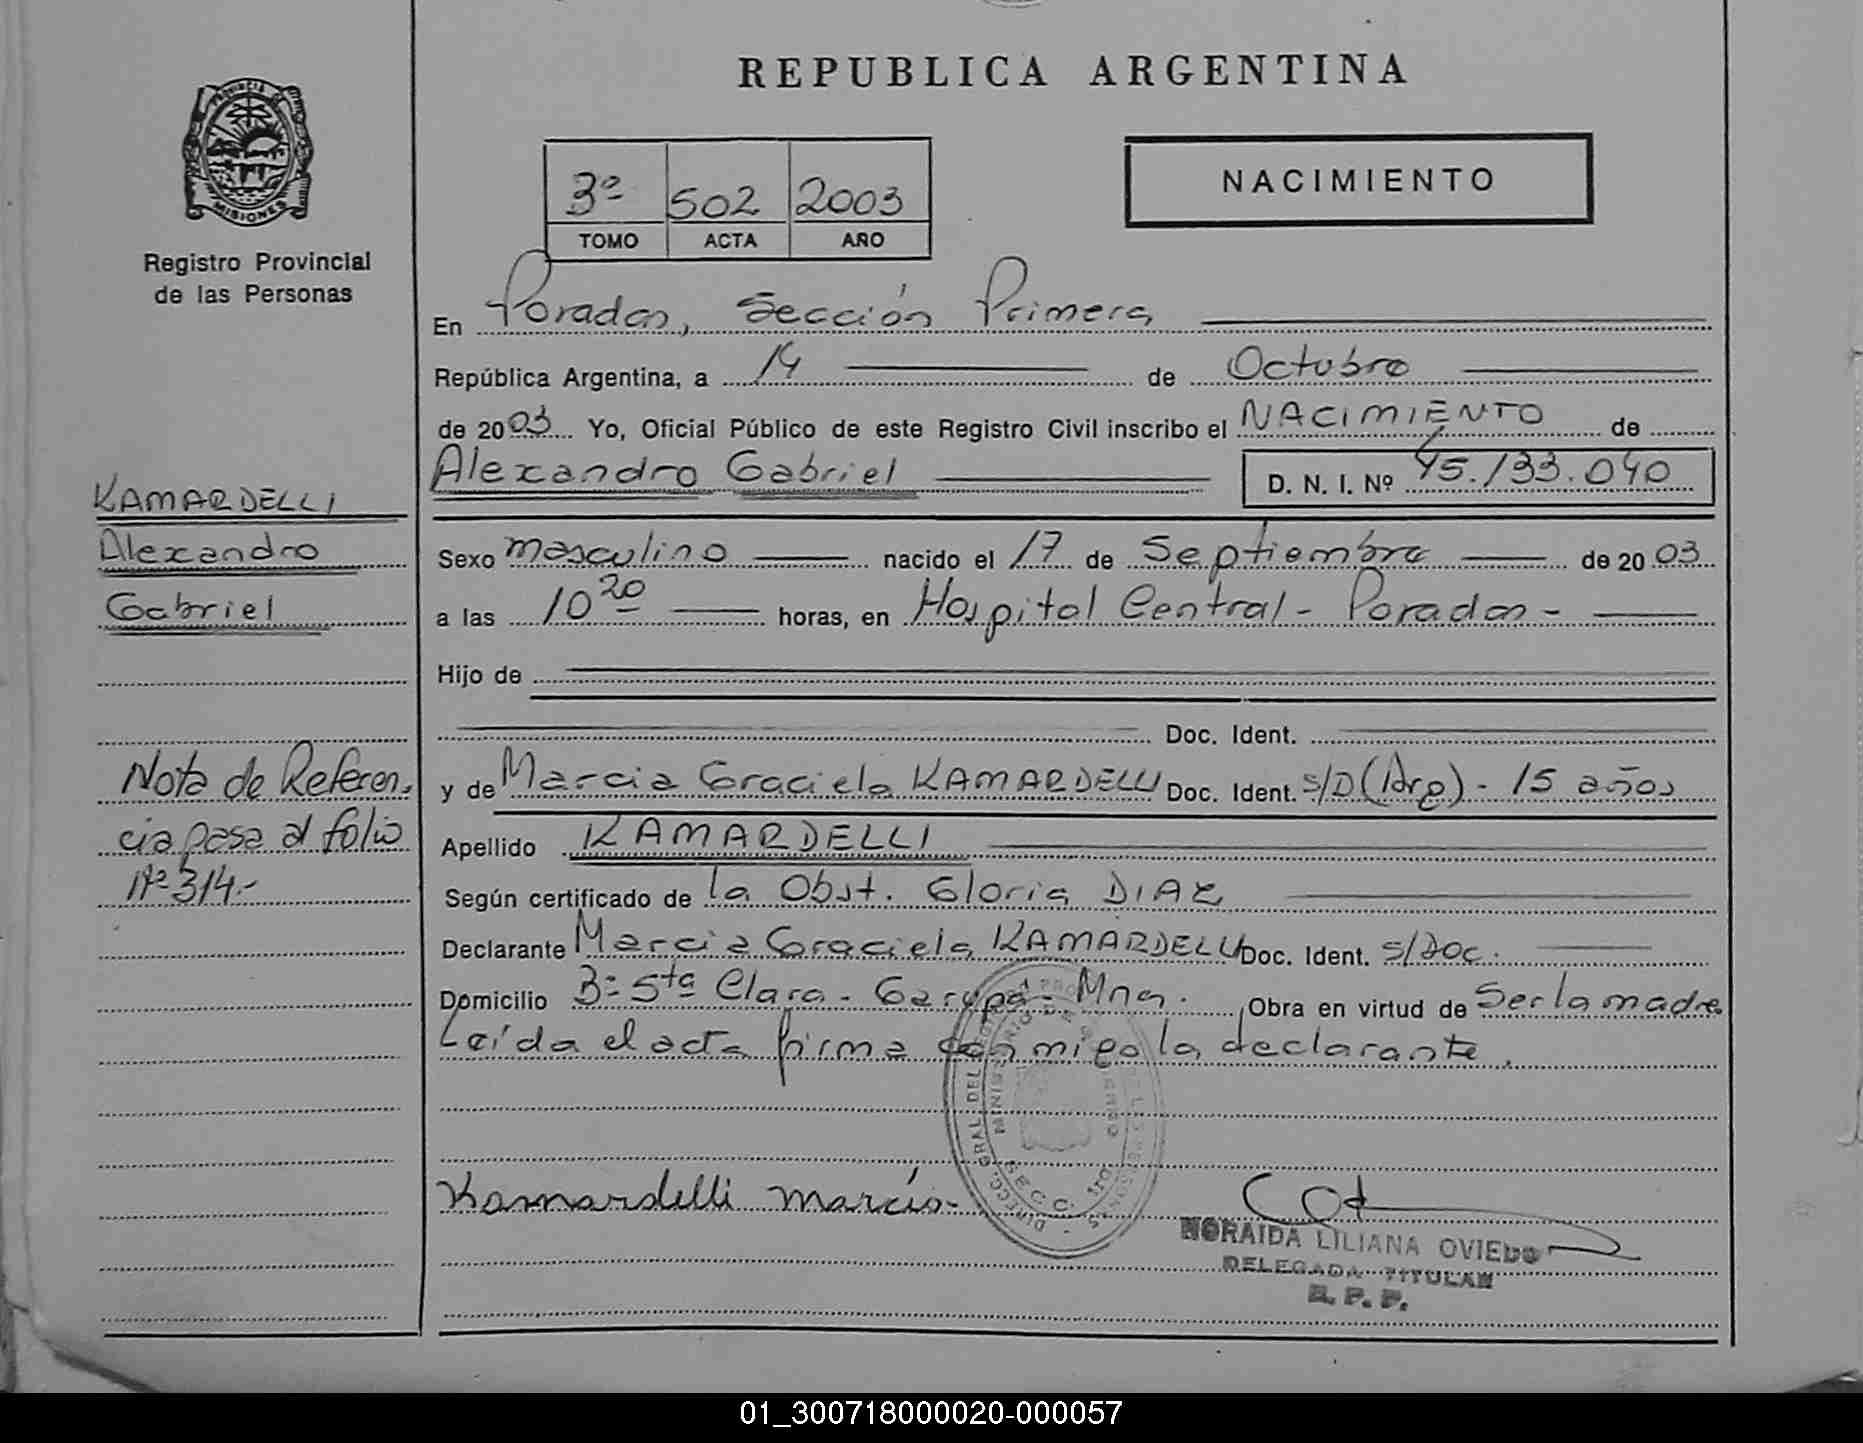 REPUBLICA ARGENTINA
PROVINCIA DE
MISIONES
Registro Provincial
de las Personas
3º 502 2003
TOMO ACTA AÑO
NACIMIENTO
En Posadas, Sección Primera
República Argentina, a 14 de Octubre
de 2003 Yo, Oficial Público de este Registro Civil inscribo el NACIMIENTO de
Alexandro Gabriel D. N. I. Nº 45.133.040
KAMARDELLI
Alexandro
Gabriel
Sexo masculino nacido el 17 de Septiembre de 2003
a las 10 20 horas, en Hospital Central - Posadas -
Hijo de
Doc. Ident.
y de Marcia Graciela KAMARDELLI Doc. Ident. S/D (Arg) - 15 años
Nota de Referen-
cia pasa al folio
Nº 314.-
Apellido KAMARDELLI
Según certificado de la Obst. Gloria DIAZ
Declarante Marcia Graciela KAMARDELLI Doc. Ident. S/Doc.
Domicilio Bº Sta Clara - Garupá - Mnes. Obra en virtud de Ser la madre
Leída el acta firma con migo la declarante.
Kamardelli Marcia
NORAIDA LILIANA OVIEDO
DELEGADA TITULAR
R. P. P.
01_300718000020-000057